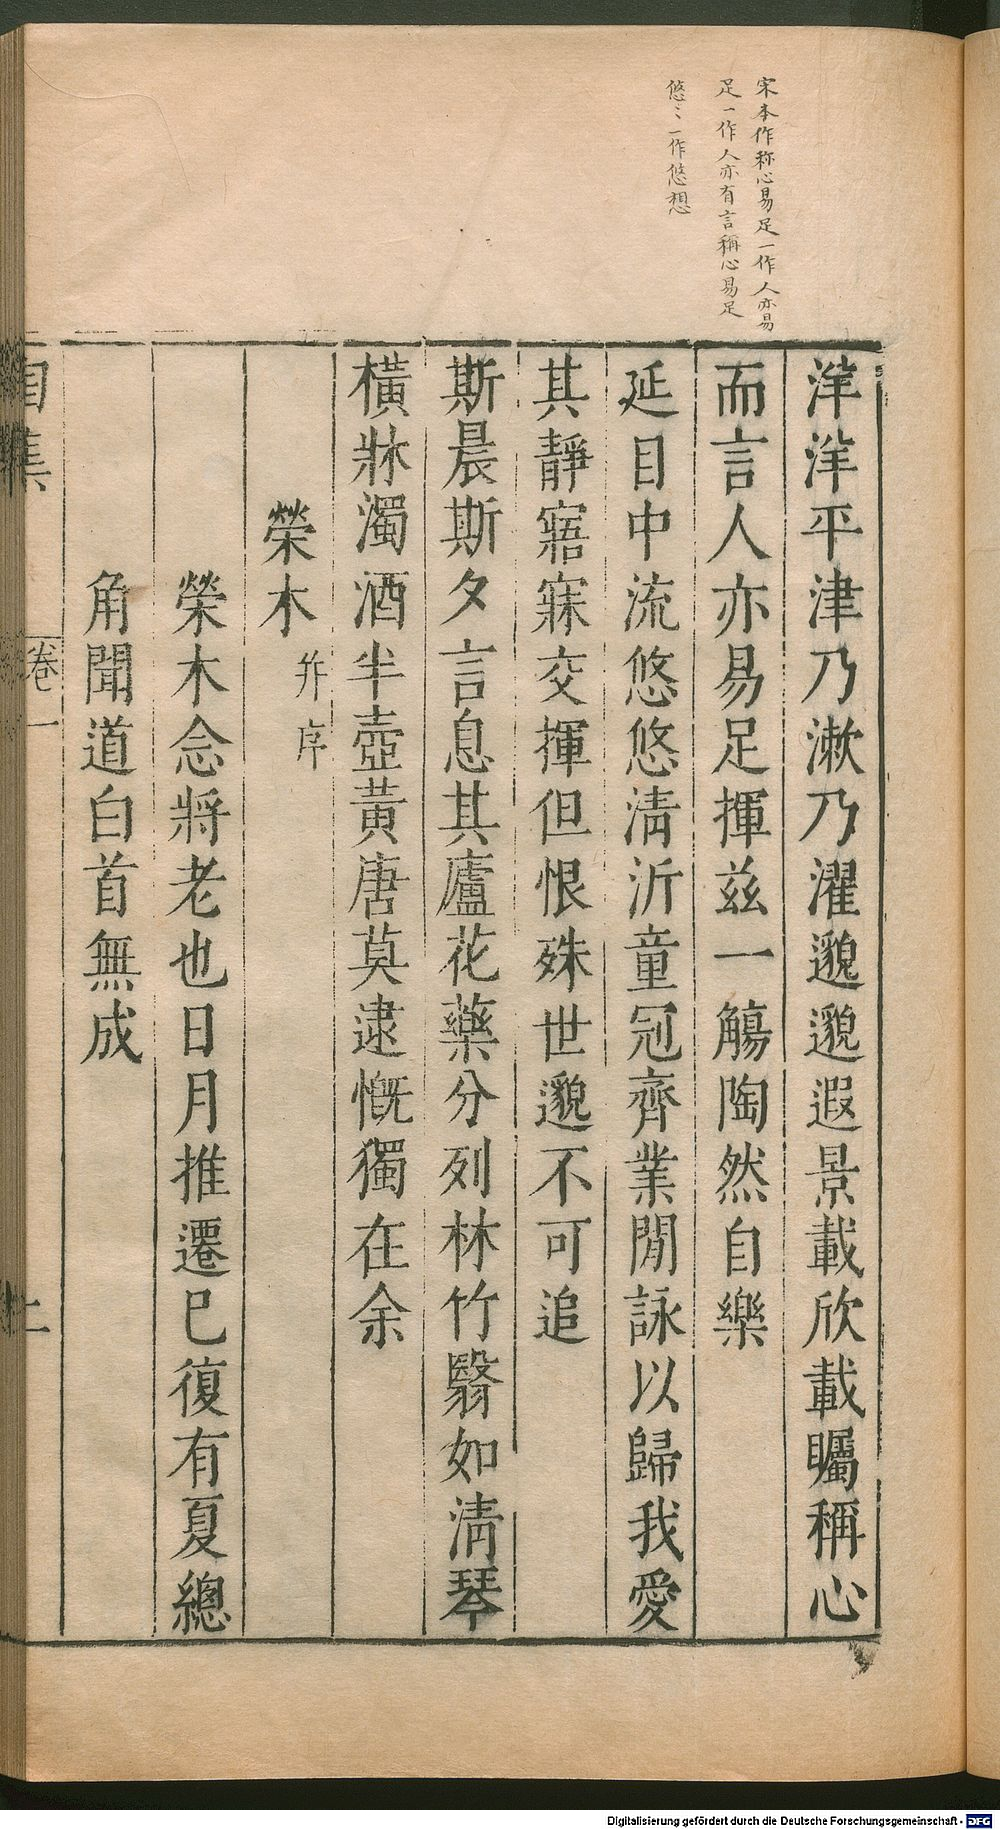 宋本作称心易足一作人亦易
足一作人亦有言稱心易足
悠〻一作悠想
洋洋平津乃漱乃濯邈邈遐景載欣載矚稱心
而言人亦易足揮兹一觴陶然自樂
延目中流悠悠淸沂童冠齊業閒詠以歸我愛
其靜寤寐交揮但恨殊世邈不可追
斯晨斯夕言息其廬花藥分列林竹翳如淸琴
橫牀濁酒半壺黃唐莫逮慨獨在余
榮木 并序
榮木念將老也日月推遷已復有夏總
角聞道白首無成
卷一
Digitalisierung gefördert durch die Deutsche Forschungsgemeinschaft - DFG